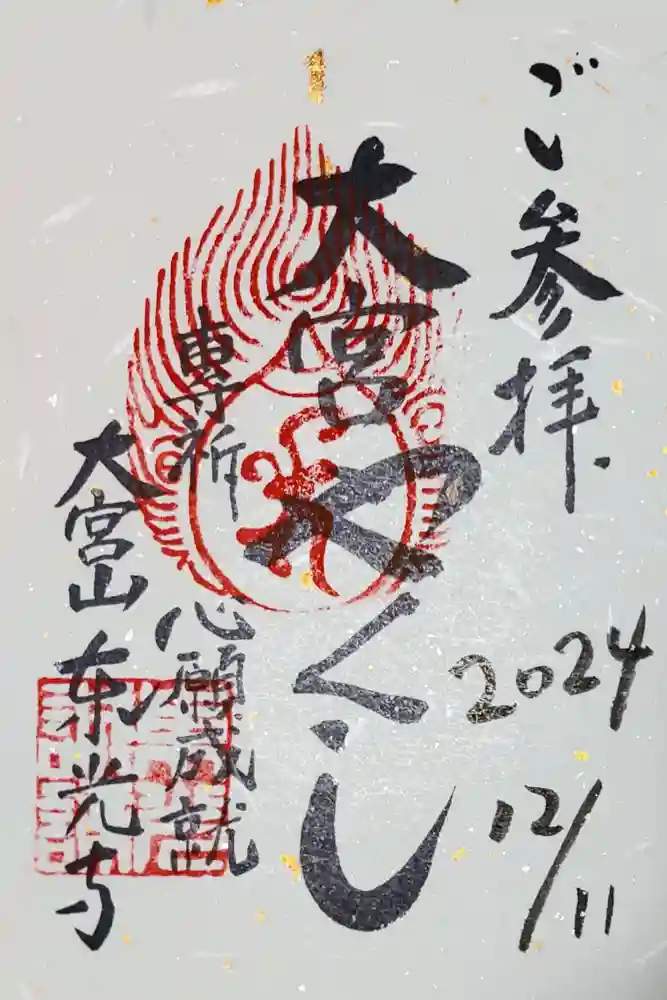 ご参拝
2024
12/11
大宮やくし
専祈
心願成就
大宮山东光寺